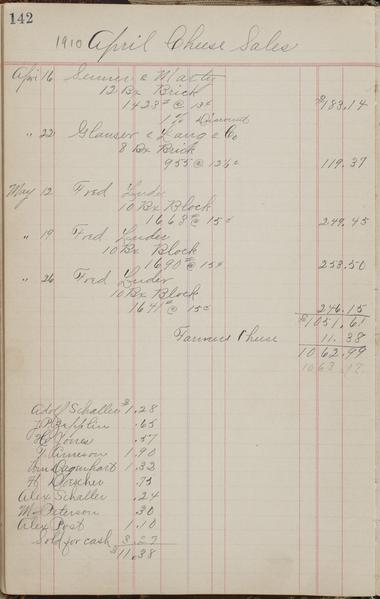 142
1910 April Cheese Sales
April 16 Senner & Marty
12 Bx Brick
1428# @ 13¢
1% Discount $183.14
" 22 Glauser & Lang & Co
8 Bx Brick
955 @ 12½¢ 119.37
May 12 Fred Luder
10 Bx Block
1663# @ 15¢ 249.45
" 19 Fred Luder
10 Bx Block
1690# @ 15¢ 253.50
" 26 Fred Luder
10 Bx Block
1641# @ 15¢ 246.15
$1051.61
Farmers Cheese 11.38
1062.99
1063.17
Adolf Schaller $1.28
J. P. Zapplin .65
H. Jones .57
J. Arneson 1.90
Wm Dagenhart 1.32
H. .75
Alex Schaller .24
M. Peterson .30
Alex Post 1.10
Sold for cash 3.27
$11.38